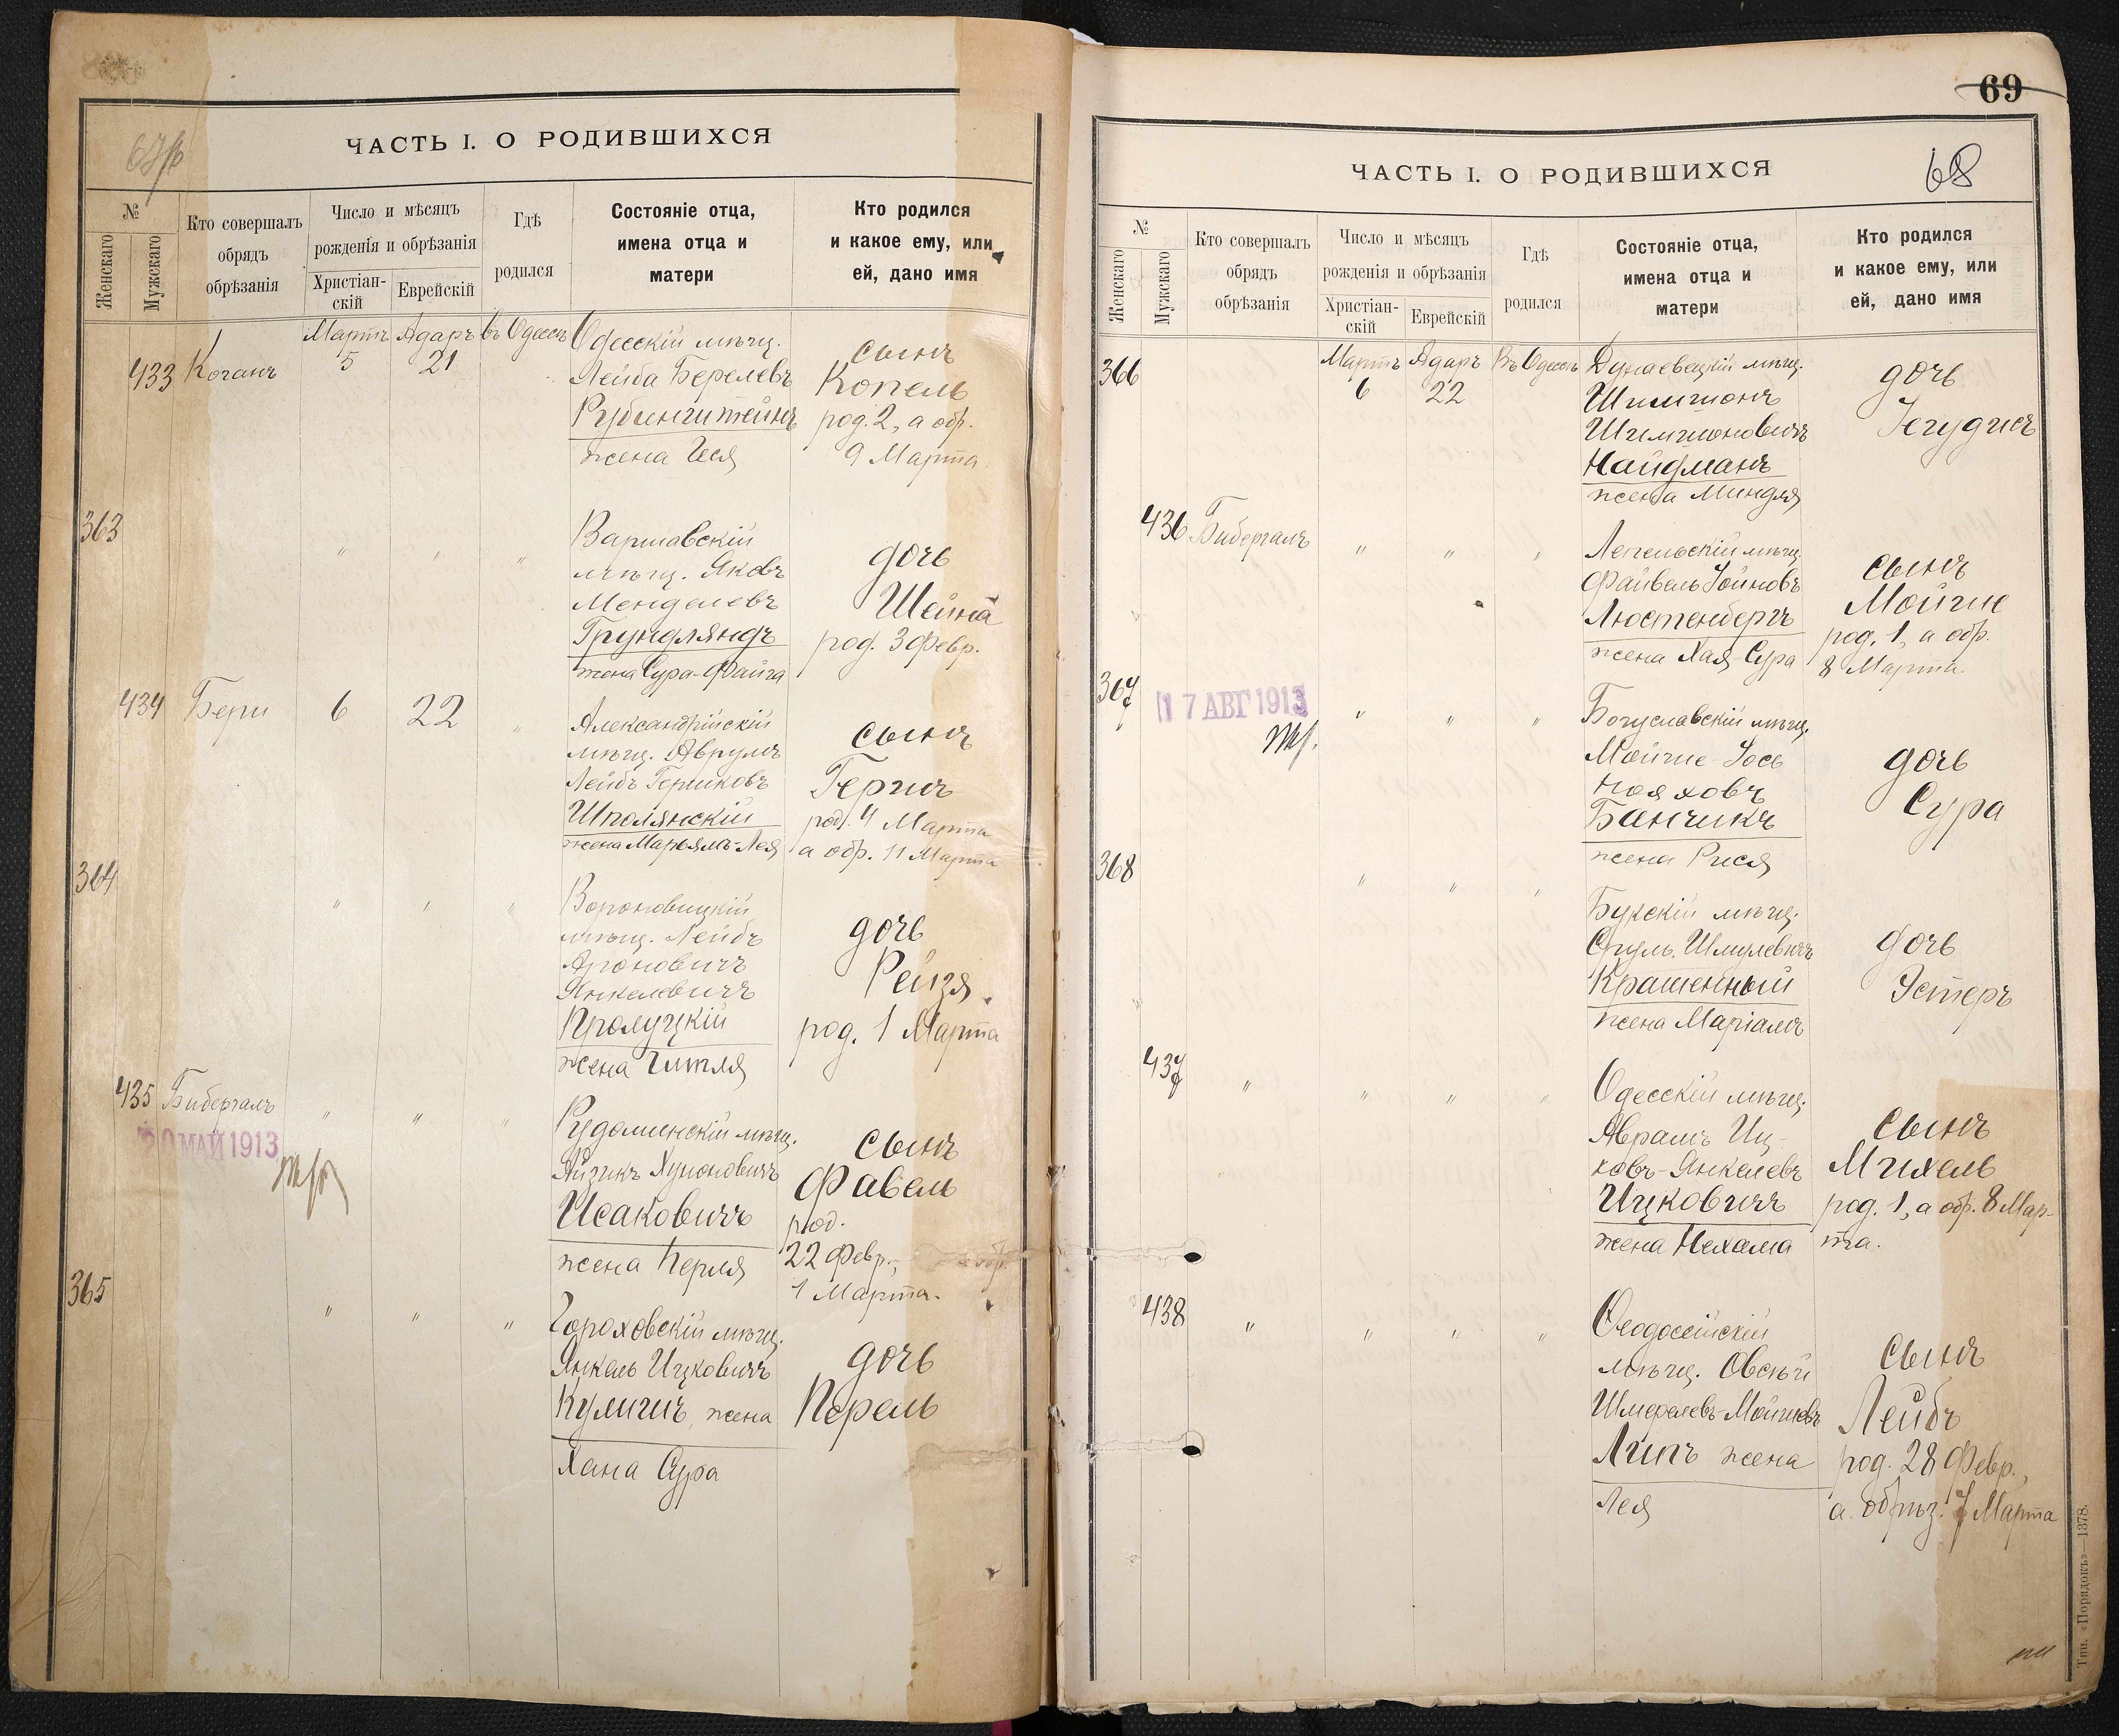 ЧАСТЬ I. О РОДИВШИХСЯ
№
Женскаго
Мужскаго
Кто совершалъ
обрядъ
обрѣзанія
Число и мѣсяцъ
рожденія и обрѣзанія
Христіан-
скій
Еврейскій
Гдѣ
родился
Состояніе отца,
имена отца и
матери
Кто родился
и какое ему, или
ей, дано имя
433 Коганъ
Мартъ 5
Адаръ 21
въ Одессѣ
Одесскій мѣщ.
Лейба Берелевъ
Рубинштейнъ
жена Геся
сынъ
Копель
род. 2, а обр.
9 Марта
363
" " "
Варшавскій
мѣщ. Яковъ
Менделевъ
Грундляндъ
жена Сура-Файга
дочь
Шейна
род. 3 Февр.
434 Бери 6 22 "
Александрійскій
мѣщ. Аврумъ
Лейбъ Гершковъ
Шполянскій
жена Марьямъ-Лея
сынъ
Гершъ
род. 4 Марта
а обр. 11 Марта
364
" " "
Вороновицкій
мѣщ. Лейбъ
Ароновичъ
Янкелевичъ
Прилуцкій
жена Гитля
дочь
Рейзя
род. 1 Марта
435 Бибергалъ " " "
20 МАЙ 1913
Рудоминскій мѣщ.
Айзикъ Хуноновичъ
Исаковичъ
жена Перля
сынъ
Фавель
род.
22 Февр., а обр.
1 Марта.
365
" " "
Гороховскій мѣщ.
Янкель Ицковичъ
Кулишъ, жена
Хана Сура
дочь
Перель
69
68
ЧАСТЬ I. О РОДИВШИХСЯ
№
Женскаго
Мужскаго
Кто совершалъ
обрядъ
обрѣзанія
Число и мѣсяцъ
рожденія и обрѣзанія
Христіан-
скій
Еврейскій
Гдѣ
родился
Состояніе отца,
имена отца и
матери
Кто родился
и какое ему, или
ей, дано имя
366
Мартъ 6
Адаръ 22
Въ Одессѣ
Дунаевецкій мѣщ.
Шимшонъ
Шимшоновичъ
Найдманъ
жена Миндля
дочь
Іегудисъ
436 Бибергалъ " " "
Лепельскій мѣщ.
Файвель Іойновъ
Люстенбергъ
жена Хая-Сура
сынъ
Мойше
род. 1, а обр.
8 Марта
367
17 АВГ 1913
" " "
Богуславскій мѣщ.
Мойше-Іось
Нояховъ
Банчикъ
жена Рися
дочь
Сура
368
" " "
Букскій мѣщ.
Сруль Шмулевичъ
Крашенный
жена Маріамъ
дочь
Эстеръ
437 " " " "
Одесскій мѣщ.
Аврамъ Иц-
ковъ-Янкелевъ
Ицковичъ
жена Нехама
сынъ
Михель
род. 1, а обр. 8 Мар-
та.
438 " " " "
Ѳеодосійскій
мѣщ. Овсѣй
Шмерелевъ-Мойшевъ
Липъ жена
Лея
сынъ
Лейбъ
род. 28 Февр.,
а обрѣз. 7 Марта
Тип. «Порядокъ»—1378.